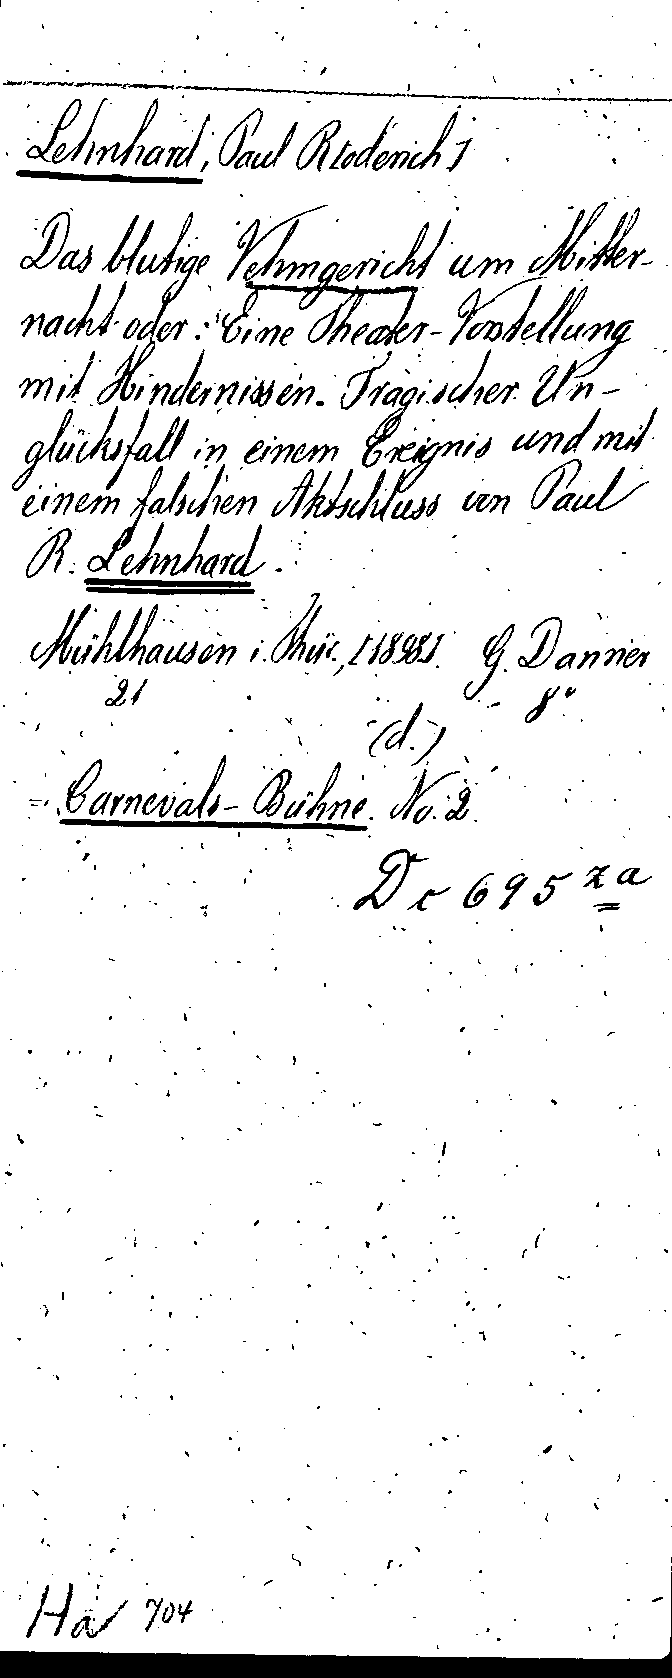 Lehnhard, Paul R[oderich]
Das blutige Vehmgericht um Mitter-
nacht oder: Eine Theater-Vorstellung
mit Hindernissen. Tragischer Un-
glücksfall in einem Ereignis und mit
einem falschen Aktschluss von Paul
R. Lehnhard.
Mühlhausen i. Thür., [1898]. G. Danner
21 8°
(d.)
= Carnevals-Bühne. No. 2.
Dc 695 za
Ha 704